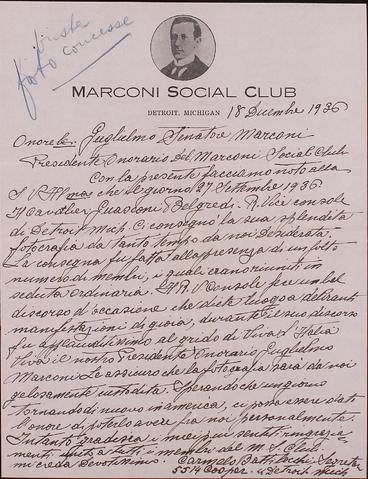 viste
foto concesse
MARCONI SOCIAL CLUB
DETROIT, MICHIGAN 18 Dicembre 1936
Guglielmo Senatore Marconi
Presidente Onorario Del Marconi Social Club
Con la presente facciamo noto alla
che il giorno 27 Settembre 1936
R. Vice console
di Detroit Mich. Ci consegnò la sua splendita
fotografia da tanto tempo da noi Desiderata.
La consegna fu fatta alla presenza di un folto
numero di membri, i quali erano riuniti in
seduta ordinaria. Il R. V. Console fece un bel
discorso d'occasione che diete luogo a deliranti
manifestazioni di gioia, durante il suo discorso
fu al grido di Viva l'Italia
Viva il nostro Presidente Onorario Guglielmo
Marconi Le assicuro che la fotografia sarà da noi
gelosamente custodita. Sperando che un giorno
tornando di nuovo in america, ci possa essere dato
l'onore di poterlo avere fra noi personalmente.
Intanto gradisca i miei più sentiti ringrazia-
menti uniti a tutti i membri del M. S. Club.
mi creda Devotissimo. Carmelo Battibocchi
5514 Cooper Detroit Mich